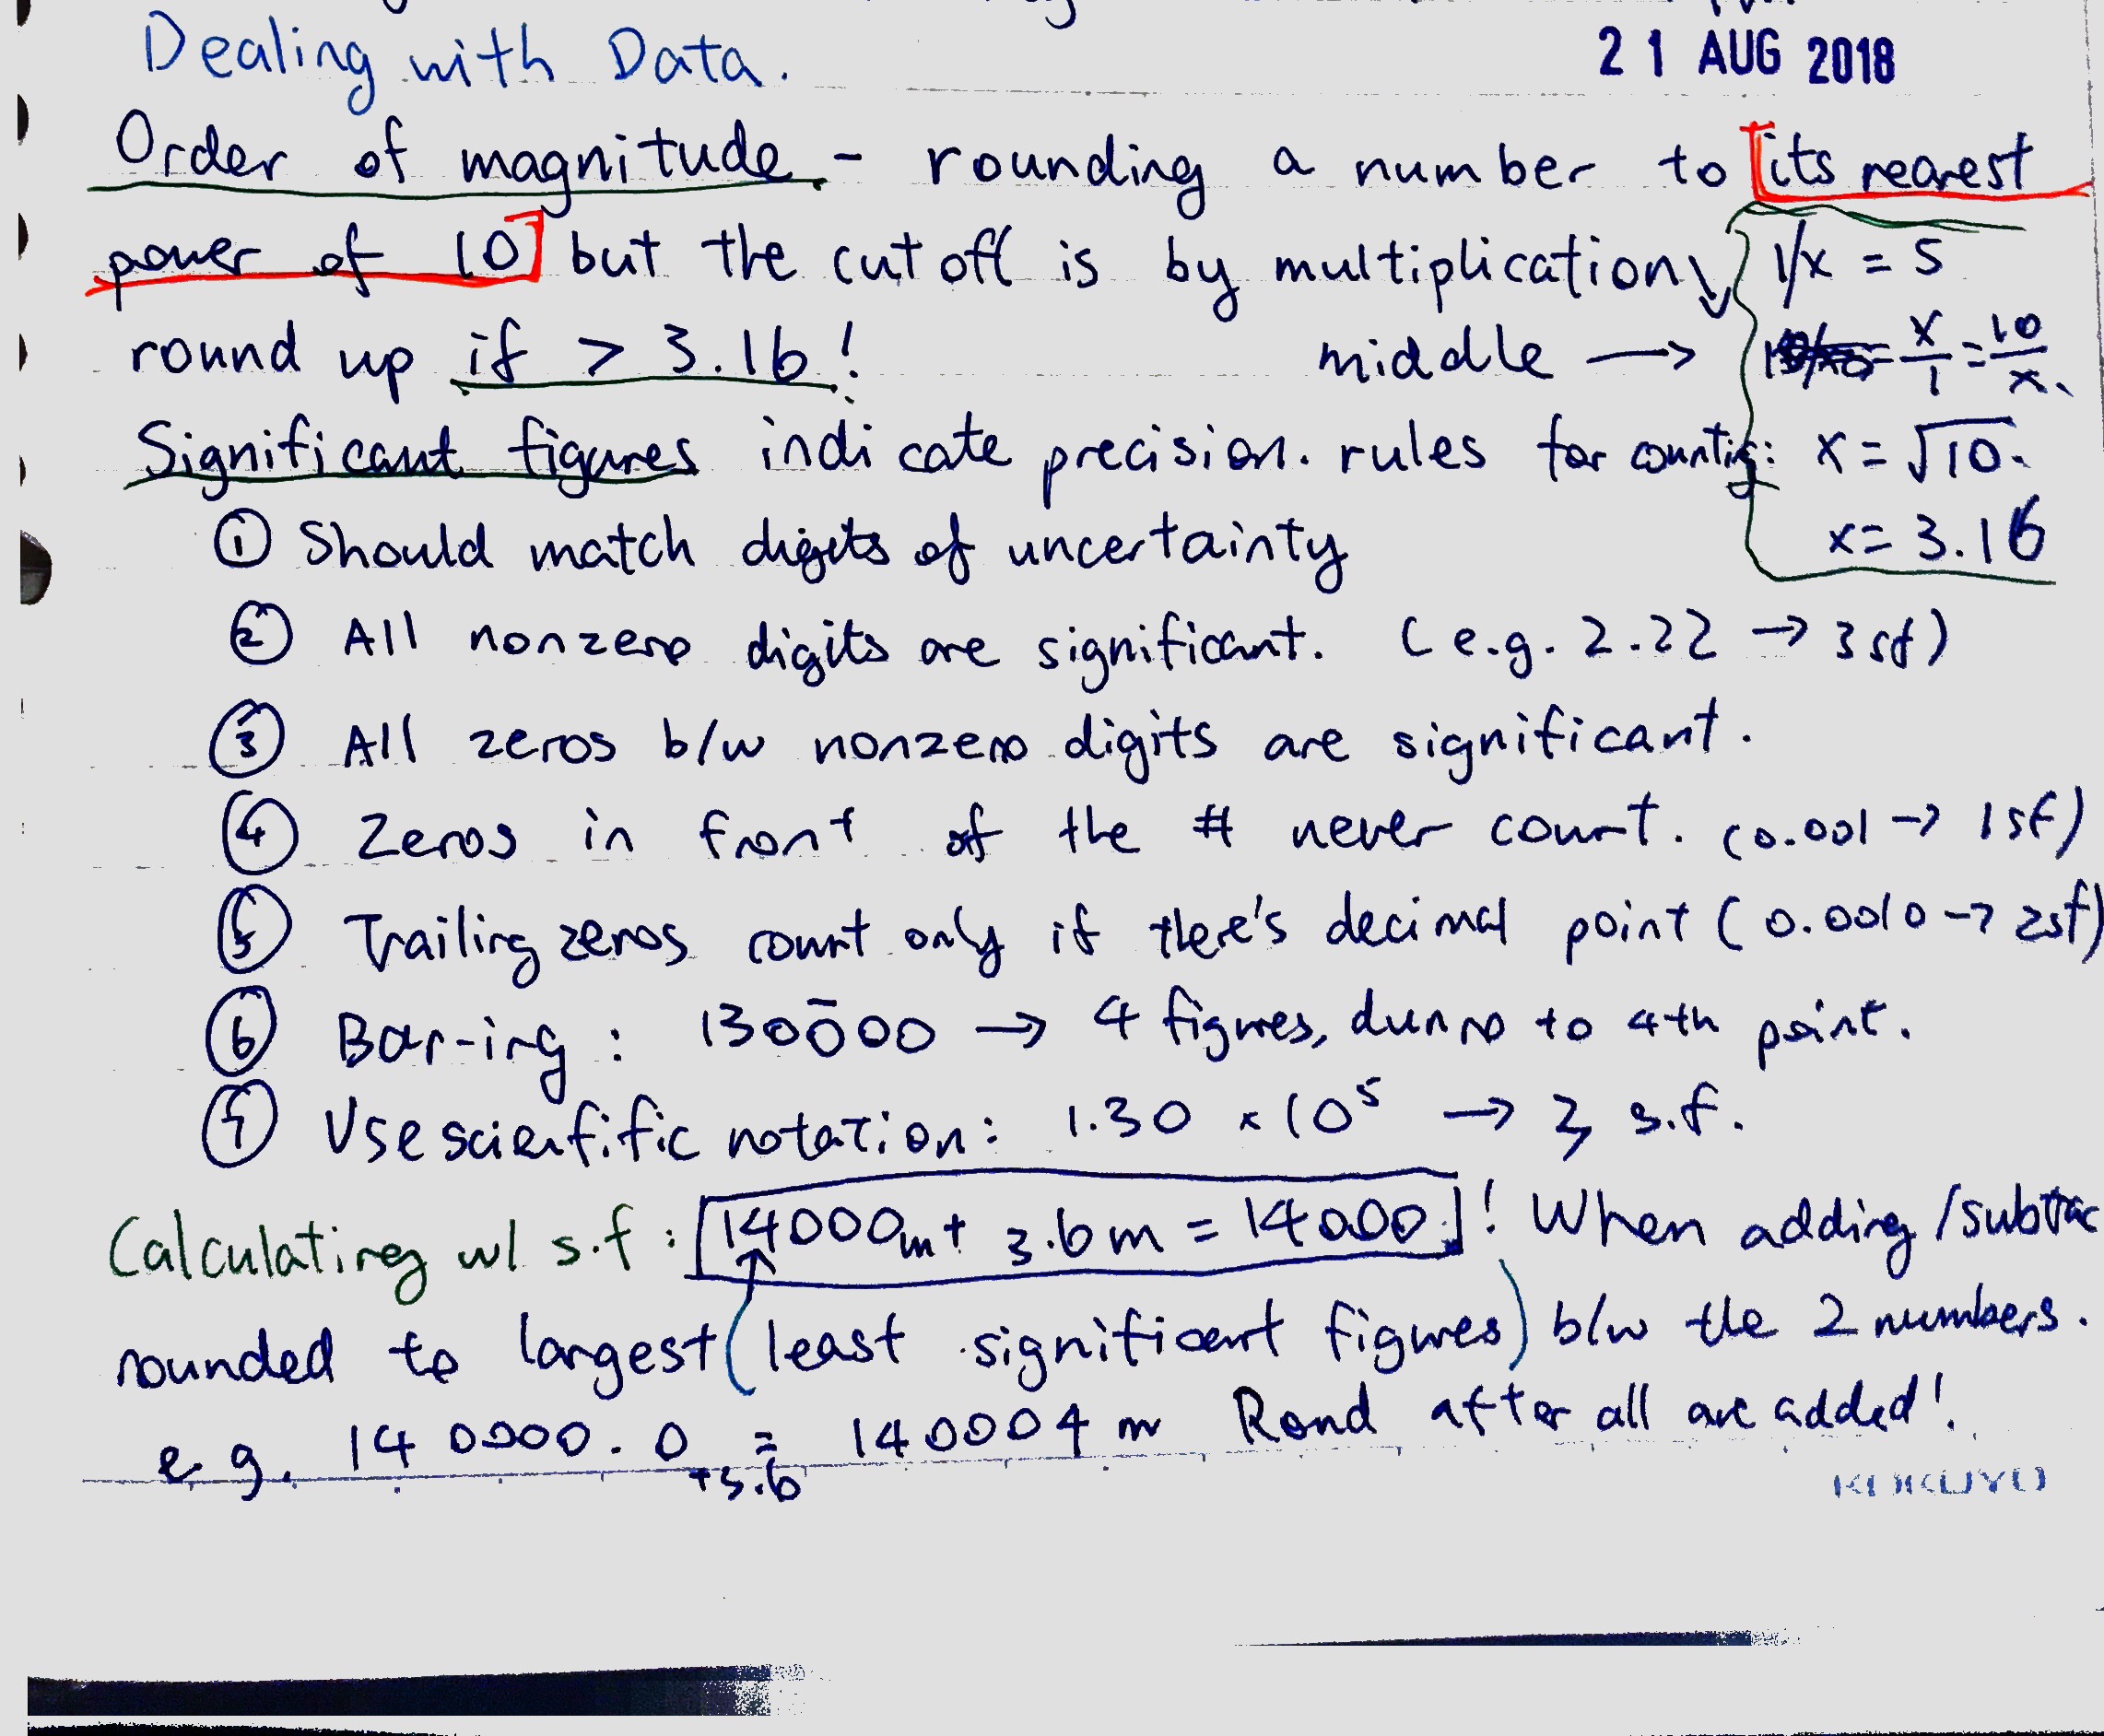 Dealing with Data.
21 AUG 2018
Order of magnitude - rounding a number to [its nearest
power of 10] but the cutoff is by multiplication,
1/x = 5
round up if > 3.16!
middle → x/1 = 10/x.
Significant figures indicate precision. rules for counting:
x = √10.
x = 3.16
① Should match digits of uncertainty
② All nonzero digits are significant. (e.g. 2.22 → 3sf)
③ All zeros b/w nonzero digits are significant.
④ Zeros in front of the # never count. (0.001 → 1sf)
⑤ Trailing zeros count only if there's decimal point (0.0010 → 2sf)
⑥ Bar-ing: 1300̄00 → 4 figures, dunno to 4th point.
⑦ Use scientific notation: 1.30 × 10⁵ → 3 s.f.
Calculating w/ s.f: [14000m + 3.6m = 14000.]! When adding/subtrac
rounded to largest (least significant figures) b/w the 2 numbers.
e.g. 140000.0 +3.6 = 140004 m Rond after all are added!
KOKUYO